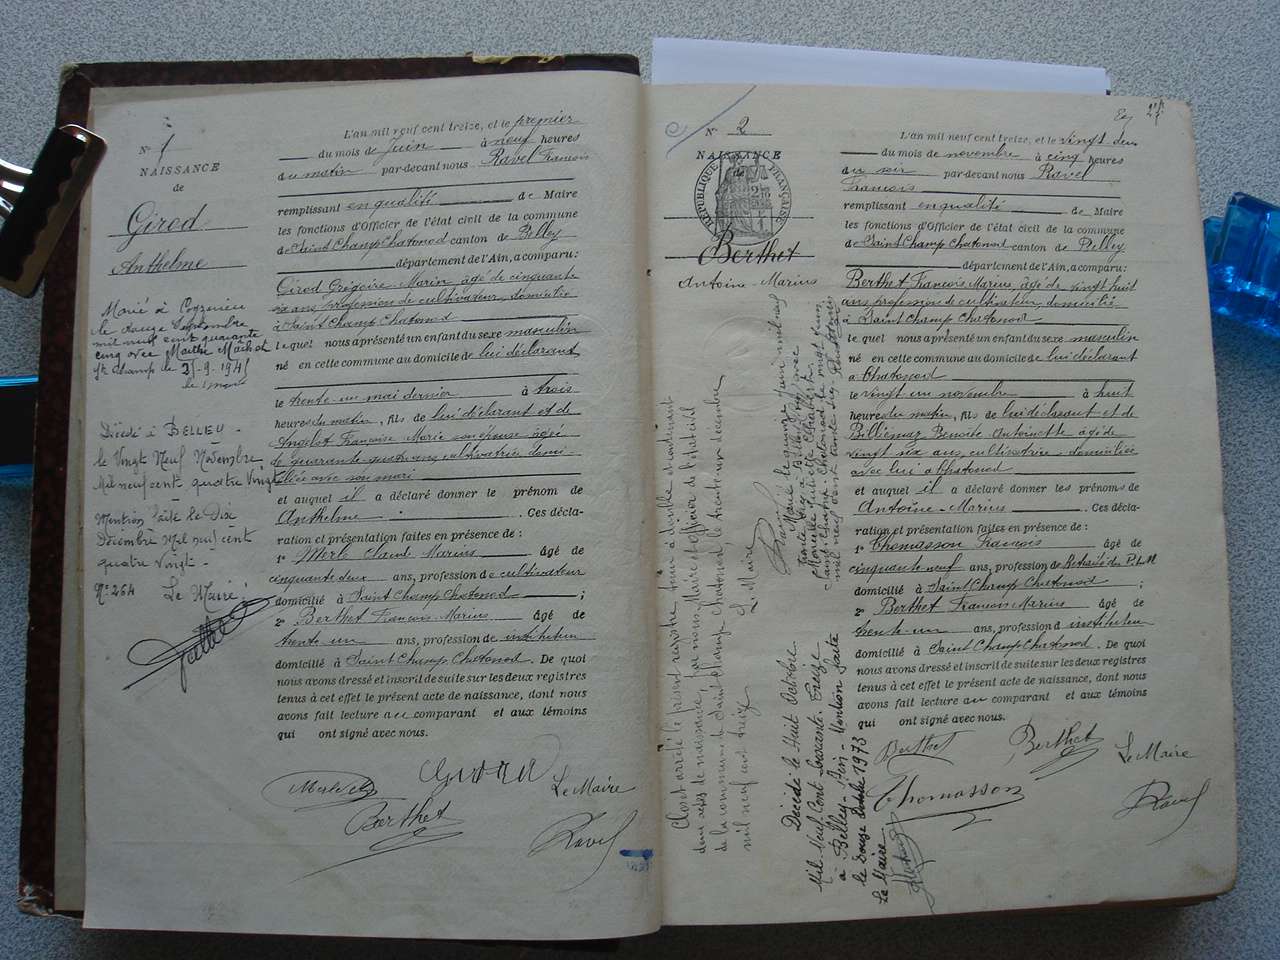 N° 1
NAISSANCE
de
Girod
Anthelme
Marié à
le douze Septembre
mil neuf cent quarante
cinq avec
St champ le 25-9-1945
le maire
Décédé à BELLEY -
le Vingt Neuf Novembre
Mil neuf cent quatre Vingt
Mention faite le Dix
Décembre Mil neuf cent
quatre Vingt -
N° 264 Le Maire :
L'an mil neuf cent treize, et le premier
du mois de Juin à neuf heures
du matin par-devant nous Ravel François
remplissant en qualité de Maire
les fonctions d'Officier de l'état civil de la commune
de Saint Champ Chatonod canton de Belley
département de l'Ain, a comparu :
Girod Grégoire Marin, âgé de cinquante
six ans, profession de cultivateur, domicilié
à Saint Champ Chatonod
lequel nous a présenté un enfant du sexe masculin
né en cette commune au domicile de lui déclarant
le trente un mai dernier à trois
heures du matin, fils de lui déclarant et de
Angelot Françoise Marie son épouse âgée
de quarante quatre ans, cultivatrice domi-
ciliée avec son mari
et auquel il a déclaré donner le prénom de
Anthelme . Ces décla-
ration et présentation faites en présence de :
1° Merle Claude Marius âgé de
cinquante deux ans, profession de cultivateur
domicilié à Saint Champ Chatonod ;
2° Berthet François Marius âgé de
trente un ans, profession de instituteur
domicilié à Saint Champ Chatonod. De quoi
nous avons dressé et inscrit de suite sur les deux registres
tenus à cet effet le présent acte de naissance, dont nous
avons fait lecture au comparant et aux témoins
qui ont signé avec nous.
Girod
Le Maire
Berthet
Ravel
N° 2
NAISSANCE
de
RÉPUBLIQUE FRANÇAISE
Berthet
Antoine-Marius
Clos et arrêté le présent registre
deux actes de naissance, par nous Maire et officier de l'état civil
de la commune de Saint Champ Chatonod, le trente un décembre
mil neuf cent treize
Le Maire
Ravel
Décédé le Huit Octobre
Mil Neuf Cent Soixante Treize
à Belley - Ain - Mention faite
le Douze Octobre 1973
Le Maire
L'an mil neuf cent treize, et le vingt deux
du mois de novembre à cinq heures
du soir par-devant nous Ravel
François
remplissant en qualité de Maire
les fonctions d'Officier de l'état civil de la commune
de Saint Champ Chatonod canton de Belley
département de l'Ain, a comparu :
Berthet François Marius, âgé de vingt huit
ans, profession de cultivateur, domicilié
à Saint Champ Chatonod
lequel nous a présenté un enfant du sexe masculin
né en cette commune au domicile de lui déclarant
à Chatonod
le vingt un novembre à huit
heures du matin, fils de lui déclarant et de
Billiémaz Benoîte Antoinette âgée de
vingt six ans, cultivatrice, domiciliée
avec lui à Chatonod
et auquel il a déclaré donner les prénoms de
Antoine-Marius . Ces décla-
ration et présentation faites en présence de :
1° Thomasson François âgé de
cinquante neuf ans, profession de Retraité du P.L.M
domicilié à Saint Champ Chatonod ;
2° Berthet François Marius âgé de
trente-un ans, profession de instituteur
domicilié à Saint Champ Chatonod. De quoi
nous avons dressé et inscrit de suite sur les deux registres
tenus à cet effet le présent acte de naissance, dont nous
avons fait lecture au comparant et aux témoins
qui ont signé avec nous.
Berthet
Berthet
Le Maire
Thomasson
Ravel